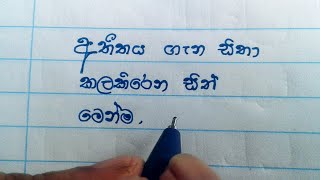 අතීතය ගැන සිතා
කලකිරෙන සිත්
මෙන්ම.